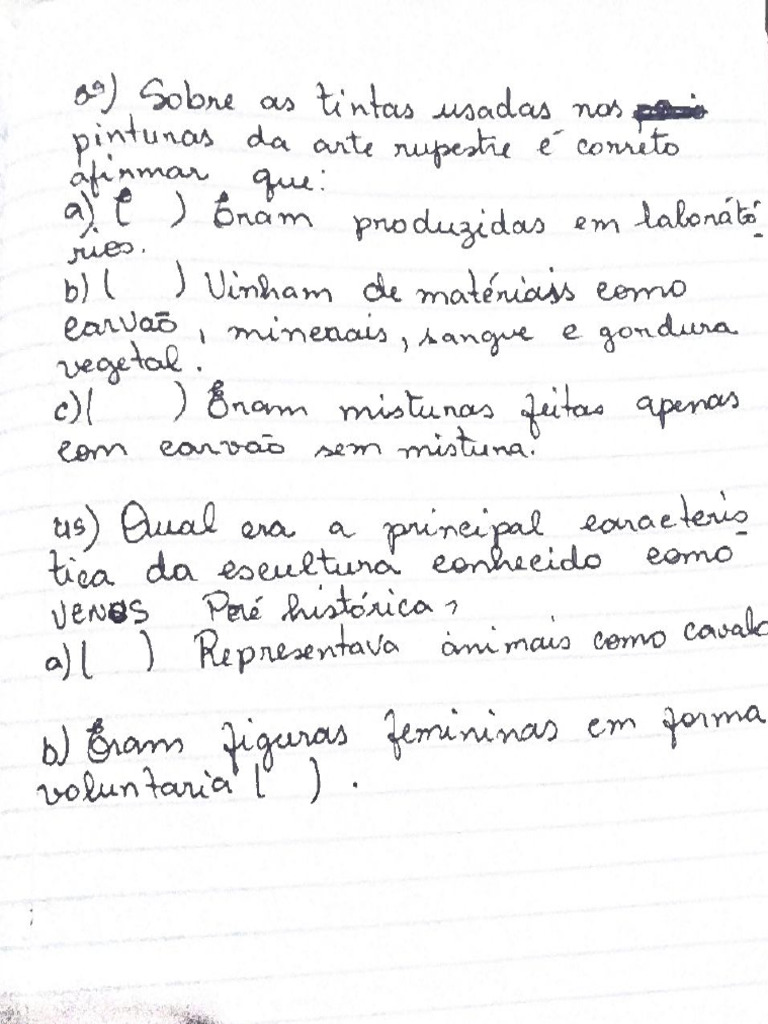 3º) Sobre as tintas usadas nas
pinturas da arte rupestre é correto
afirmar que:
a) ( ) Eram produzidas em laborátó-
rios.
b) ( ) Vinham de matériais como
carvão, minerais, sangue e gordura
vegetal.
c) ( ) Eram misturas feitas apenas
com carvão sem mistura.
4º) Qual era a principal caracterís-
tica da escultura conhecido como
VENOS Pré histórica?
a) ( ) Representava animais como cavalo
b) Eram figuras femininas em forma
voluntaria ( ).